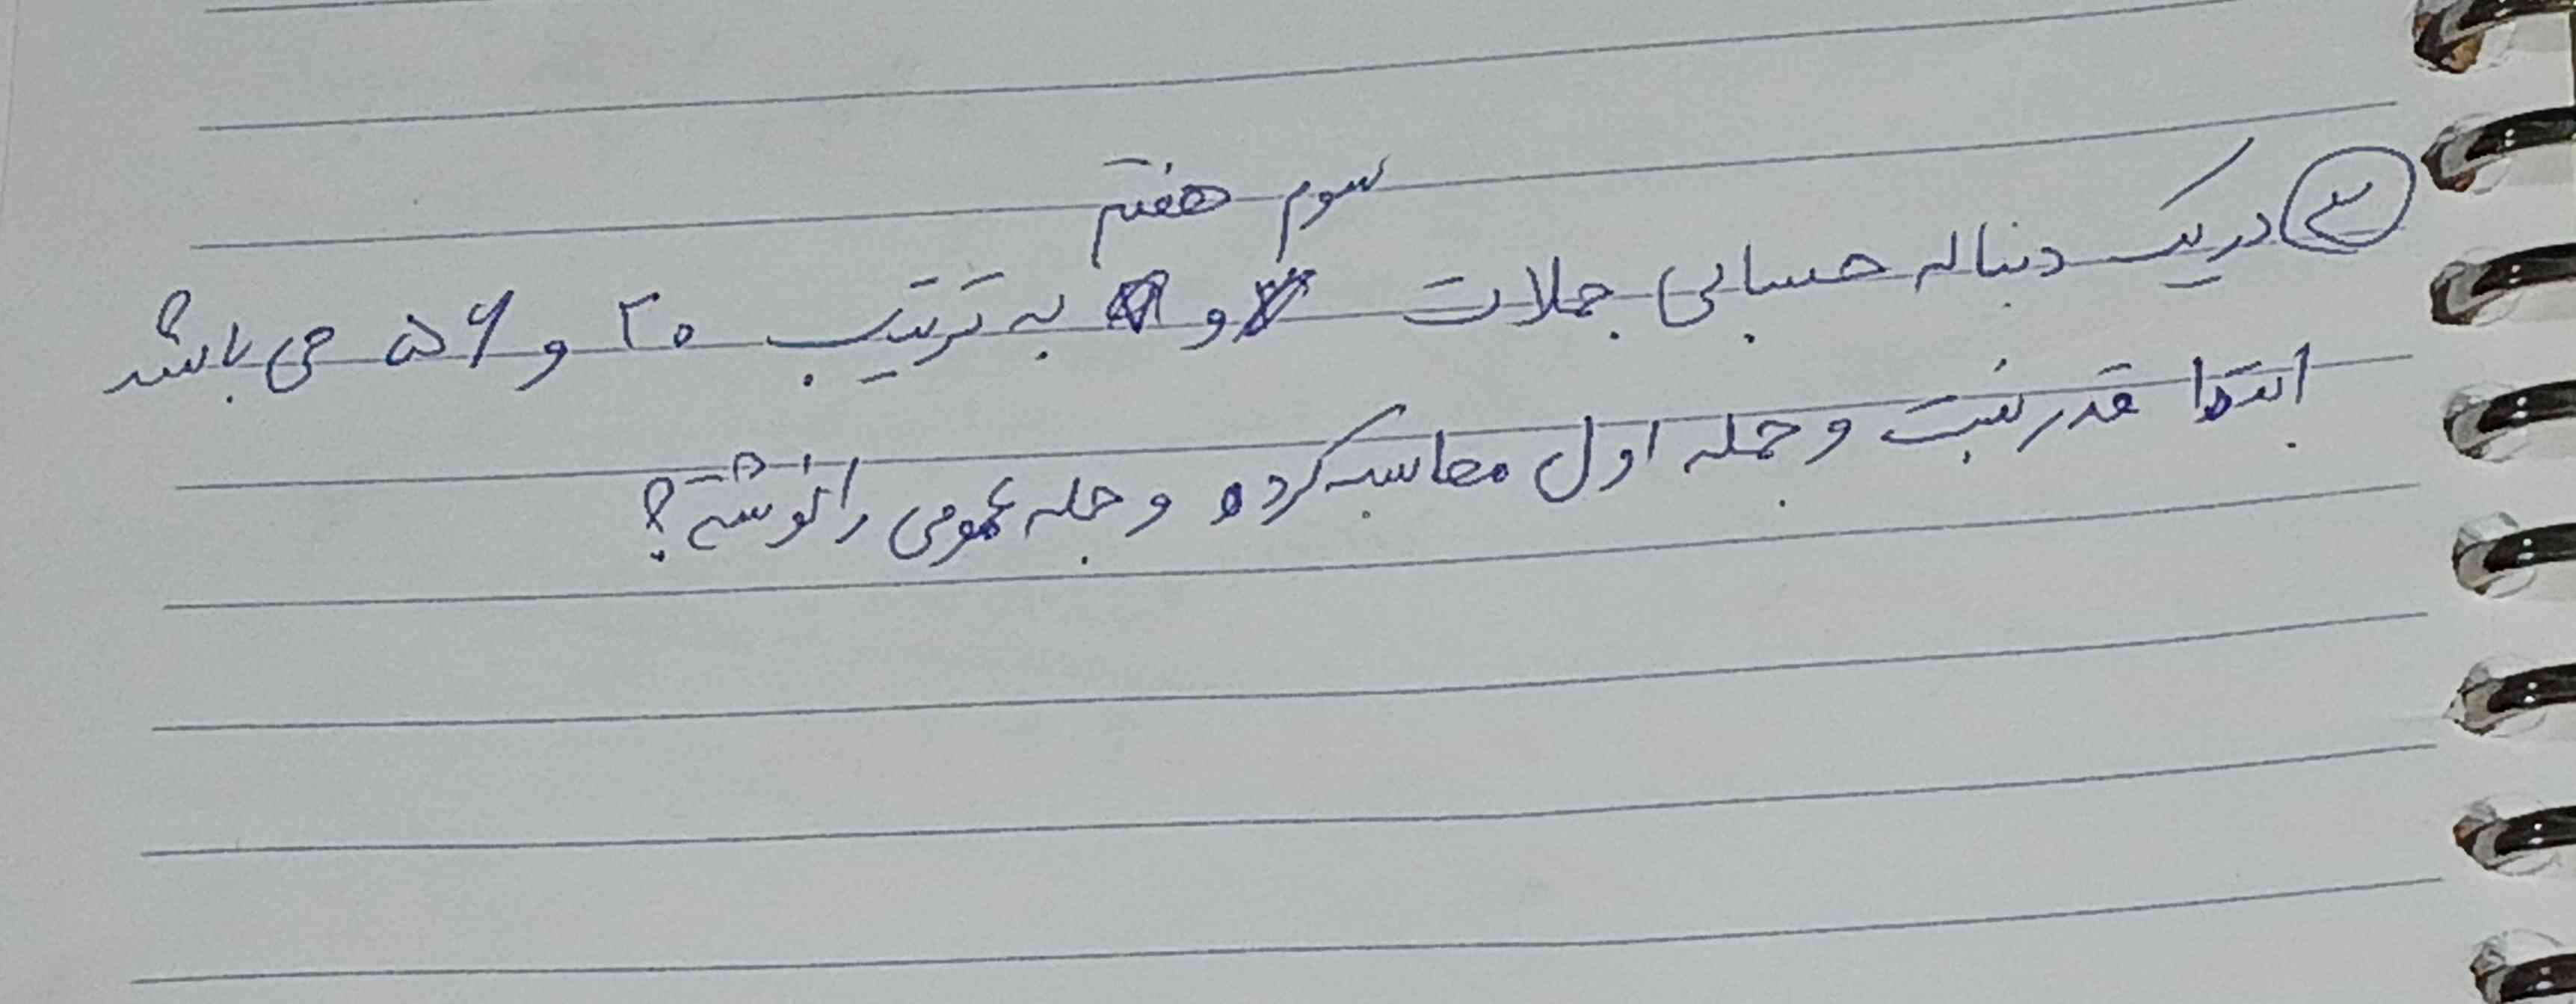 سوم هفتم
③ در یک دنباله حسابی جملات و به ترتیب ۲۰ و ۵۶ می باشد
ابتدا قدر نسبت و جمله اول محاسبه کرده و جمله عمومی را نوشته؟